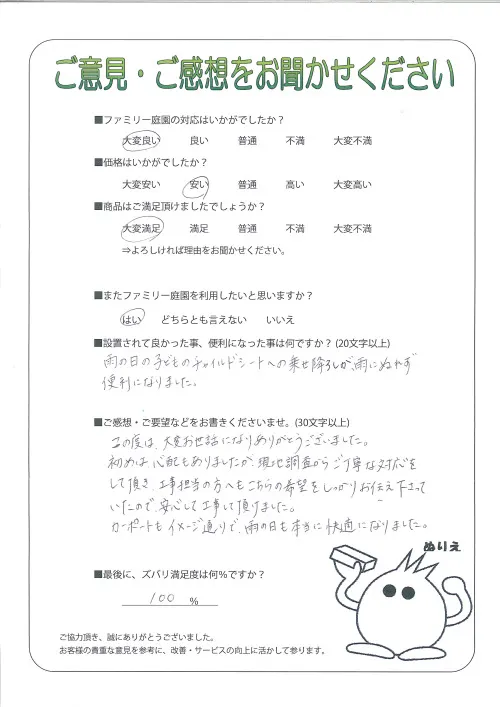 ご意見・ご感想をお聞かせください
■ファミリー庭園の対応はいかがでしたか？
大変良い 良い 普通 不満 大変不満
■価格はいかがでしたか？
大変安い 安い 普通 高い 大変高い
■商品はご満足頂けましたでしょうか？
大変満足 満足 普通 不満 大変不満
⇒よろしければ理由をお聞かせください。
■またファミリー庭園を利用したいと思いますか？
はい どちらとも言えない いいえ
■設置されて良かった事、便利になった事は何ですか？(20文字以上)
雨の日の子どものチャイルドシートへの乗せ降ろしが、雨にぬれず
便利になりました。
■ご感想・ご要望などをお書きくださいませ。(30文字以上)
この度は、大変お世話になりありがとうございました。
初めは心配もありましたが、現地調査からご丁寧な対応を
して頂き、工事担当の方へもこちらの希望をしっかりお伝え下さって
いたので、安心して工事して頂けました。
カーポートもイメージ通りで、雨の日も本当に快適になりました。
ぬりえ
■最後に、ズバリ満足度は何％ですか？
100 %
ご協力頂き、誠にありがとうございました。
お客様の貴重な意見を参考に、改善・サービスの向上に活かして参ります。